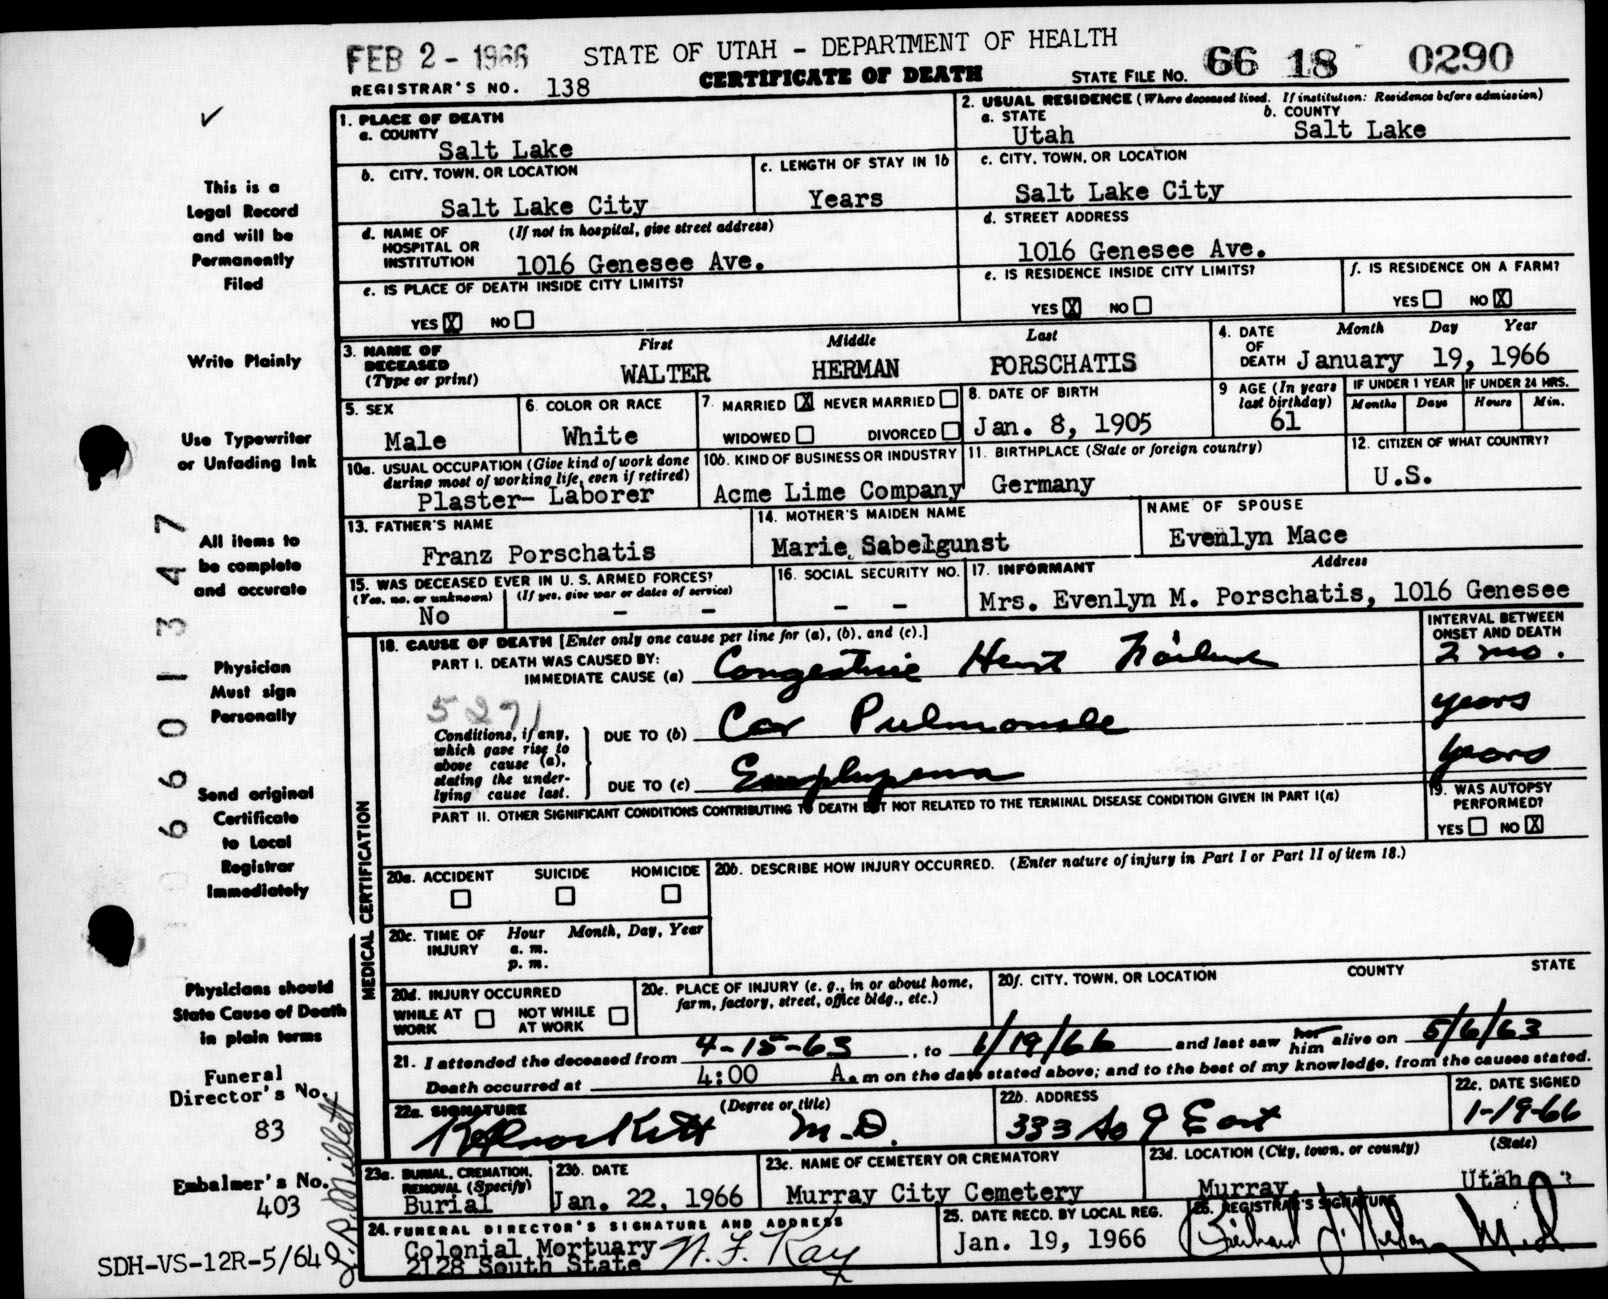 FEB 2 - 1966 STATE OF UTAH - DEPARTMENT OF HEALTH
REGISTRAR'S NO. 138 CERTIFICATE OF DEATH STATE FILE NO. 66 18 0290
✓
This is a
Legal Record
and will be
Permanently
Filed
Write Plainly
Use Typewriter
or Unfading Ink
All items to
be complete
and accurate
Physician
Must sign
Personally
Send original
Certificate
to Local
Registrar
Immediately
Physicians should
State Cause of Death
in plain terms
Funeral
Director's No.
83
Embalmer's No.
403
SDH-VS-12R-5/64
6601347
1. PLACE OF DEATH
a. COUNTY
Salt Lake
2. USUAL RESIDENCE (Where deceased lived. If institution: Residence before admission)
a. STATE b. COUNTY
Utah Salt Lake
b. CITY, TOWN, OR LOCATION c. LENGTH OF STAY IN 1b
Salt Lake City Years
c. CITY, TOWN, OR LOCATION
Salt Lake City
d. NAME OF (If not in hospital, give street address)
HOSPITAL OR
INSTITUTION 1016 Genesee Ave.
d. STREET ADDRESS
1016 Genesee Ave.
e. IS PLACE OF DEATH INSIDE CITY LIMITS?
YES X NO
e. IS RESIDENCE INSIDE CITY LIMITS? f. IS RESIDENCE ON A FARM?
YES X NO YES NO X
3. NAME OF First Middle Last
DECEASED
(Type or print) WALTER HERMAN PORSCHATIS
4. DATE Month Day Year
OF
DEATH January 19, 1966
5. SEX 6. COLOR OR RACE
Male White
7. MARRIED X NEVER MARRIED
WIDOWED DIVORCED
8. DATE OF BIRTH
Jan. 8, 1905
9 AGE (In years IF UNDER 1 YEAR IF UNDER 24 HRS.
last birthday) Months Days Hours Min.
61
10a. USUAL OCCUPATION (Give kind of work done
during most of working life, even if retired)
Plaster- Laborer
10b. KIND OF BUSINESS OR INDUSTRY
Acme Lime Company
11. BIRTHPLACE (State or foreign country)
Germany
12. CITIZEN OF WHAT COUNTRY?
U.S.
13. FATHER'S NAME
Franz Porschatis
14. MOTHER'S MAIDEN NAME
Marie Sabelgunst
NAME OF SPOUSE
Evenlyn Mace
15. WAS DECEASED EVER IN U. S. ARMED FORCES?
(Yes, no, or unknown) (If yes, give war or dates of service)
No - -
16. SOCIAL SECURITY NO.
- -
17. INFORMANT Address
Mrs. Evenlyn M. Porschatis, 1016 Genesee
MEDICAL CERTIFICATION
18. CAUSE OF DEATH [Enter only one cause per line for (a), (b), and (c).]
INTERVAL BETWEEN
ONSET AND DEATH
PART I. DEATH WAS CAUSED BY:
IMMEDIATE CAUSE (a) Congestive Heart Failure 2 mo.
5271
Conditions, if any,
which gave rise to
above cause (a),
stating the under-
lying cause last.
DUE TO (b) Cor Pulmonale years
DUE TO (c) Emphysema years
PART II. OTHER SIGNIFICANT CONDITIONS CONTRIBUTING TO DEATH BUT NOT RELATED TO THE TERMINAL DISEASE CONDITION GIVEN IN PART I(a)
19. WAS AUTOPSY
PERFORMED?
YES NO X
20a. ACCIDENT SUICIDE HOMICIDE
20b. DESCRIBE HOW INJURY OCCURRED. (Enter nature of injury in Part I or Part II of item 18.)
20c. TIME OF Hour Month, Day, Year
INJURY a. m.
p. m.
20d. INJURY OCCURRED
WHILE AT NOT WHILE
WORK AT WORK
20e. PLACE OF INJURY (e. g., in or about home,
farm, factory, street, office bldg., etc.)
20f. CITY, TOWN, OR LOCATION COUNTY STATE
21. I attended the deceased from 4-15-63, to 1/19/66 and last saw her him alive on 5/6/63
Death occurred at 4:00 A. m on the date stated above; and to the best of my knowledge, from the causes stated.
22a. SIGNATURE (Degree or title)
M.D.
22b. ADDRESS
333 So 9 East
22c. DATE SIGNED
1-19-66
23a. BURIAL, CREMATION,
REMOVAL (Specify)
Burial
23b. DATE
Jan. 22, 1966
23c. NAME OF CEMETERY OR CREMATORY
Murray City Cemetery
23d. LOCATION (City, town, or county) (State)
Murray Utah
24. FUNERAL DIRECTOR'S SIGNATURE AND ADDRESS
Colonial Mortuary N. F. Kay
2128 South State
25. DATE RECD. BY LOCAL REG.
Jan. 19, 1966
26. REGISTRAR'S SIGNATURE
M.D.